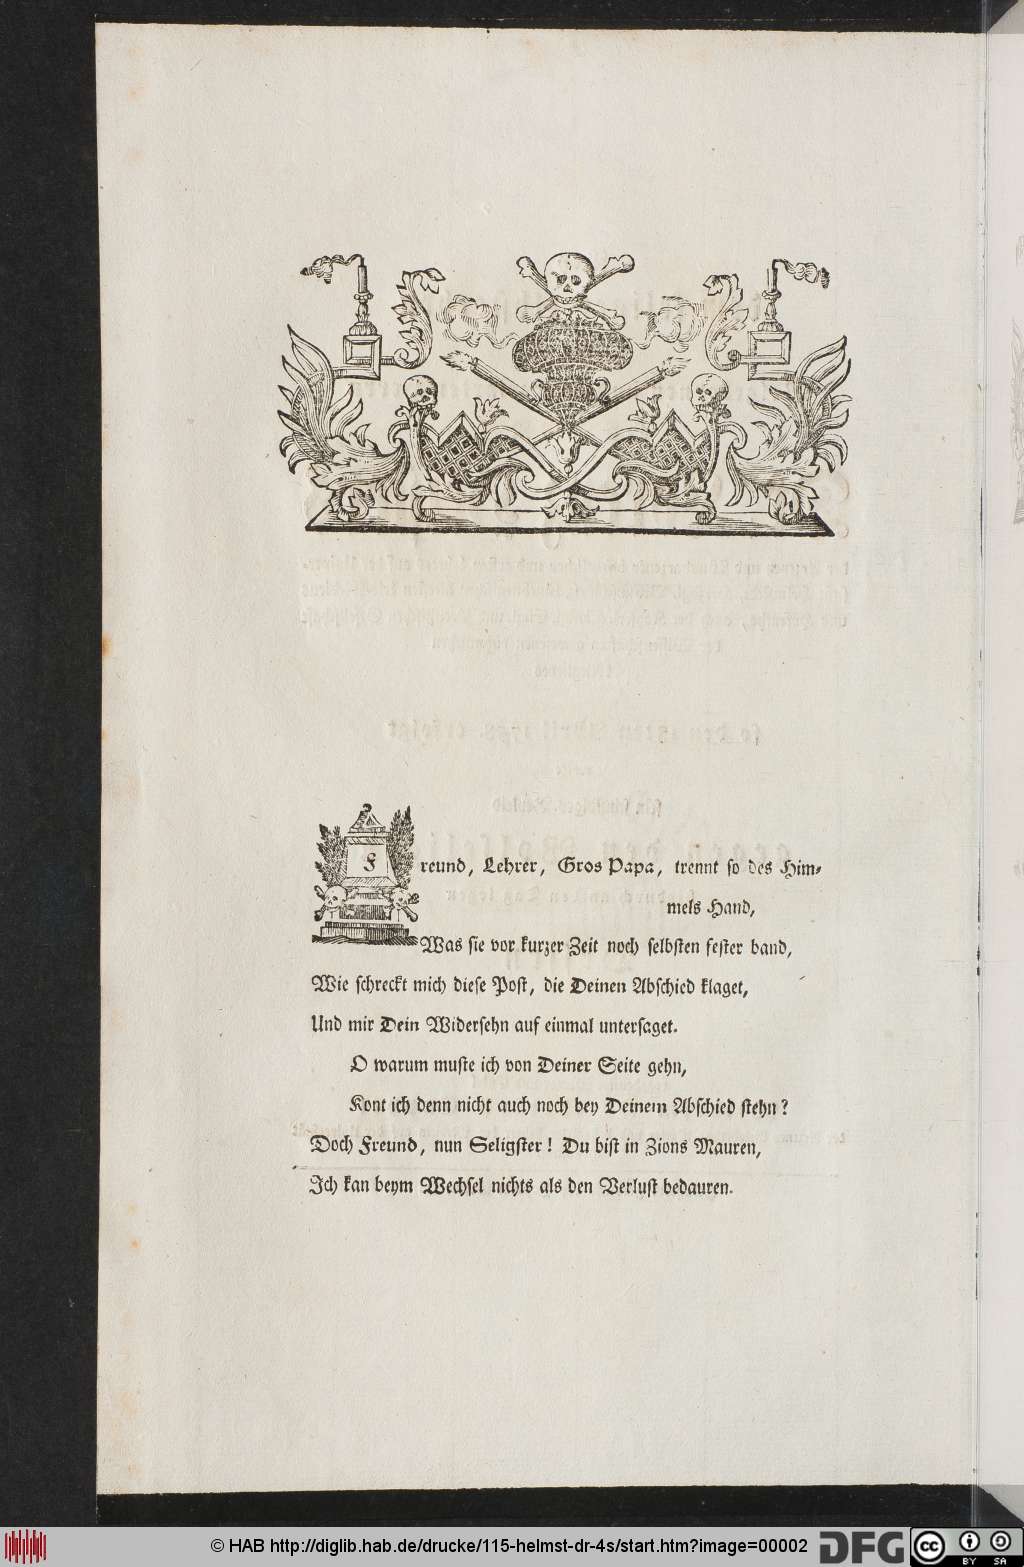 Freund, Lehrer, Gros Papa, trennt so des Him-
mels Hand,
Was sie vor kurzer Zeit noch selbsten fester band,
Wie schreckt mich diese Post, die Deinen Abschied klaget,
Und mir Dein Widersehn auf einmal untersaget.
O warum muste ich von Deiner Seite gehn,
Kont ich denn nicht auch noch bey Deinem Abschied stehn?
Doch Freund, nun Seligster! Du bist in Zions Mauren,
Ich kan beym Wechsel nichts als den Verlust bedauren.
© HAB http://diglib.hab.de/drucke/115-helmst-dr-4s/start.htm?image=00002
DFG
cc
BY SA